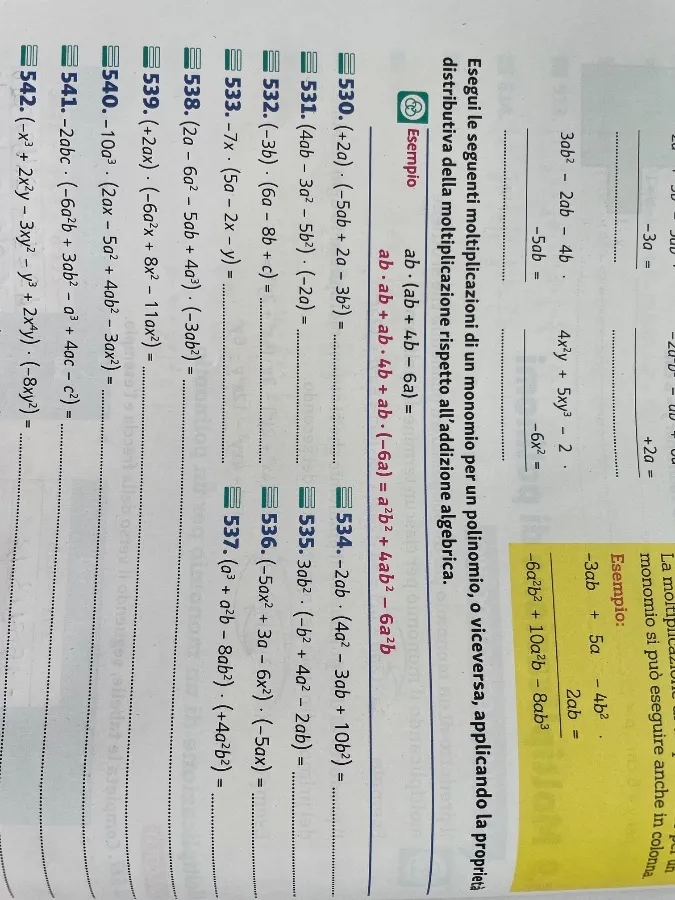 La moltiplicazione di
monomio si può eseguire anche in colonna.
Esempio:
-3ab + 5a - 4b² ·
2ab =
-6a²b² + 10a²b - 8ab³
-3a =
+2a =
3ab² - 2ab - 4b ·
-5ab =
4x²y + 5xy³ - 2 ·
-6x² =
Esegui le seguenti moltiplicazioni di un monomio per un polinomio, o viceversa, applicando la proprietà
distributiva della moltiplicazione rispetto all'addizione algebrica.
Esempio
ab · (ab + 4b - 6a) =
ab · ab + ab · 4b + ab · (-6a) = a²b² + 4ab² - 6a²b
530. (+2a) · (-5ab + 2a - 3b²) =
531. (4ab - 3a² - 5b²) · (-2a) =
532. (-3b) · (6a - 8b + c) =
533. -7x · (5a - 2x - y) =
534. -2ab · (4a² - 3ab + 10b²) =
535. 3ab² · (-b² + 4a² - 2ab) =
536. (-5ax² + 3a - 6x²) · (-5ax) =
537. (a³ + a²b - 8ab²) · (+4a²b²) =
538. (2a - 6a² - 5ab + 4a³) · (-3ab²) =
539. (+2ax) · (-6a²x + 8x² - 11ax²) =
540. -10a³ · (2ax - 5a² + 4ab² - 3ax²) =
541. -2abc · (-6a²b + 3ab² - a³ + 4ac - c²) =
542. (-x³ + 2x²y - 3xy² - y³ + 2x⁴y) · (-8xy²) =